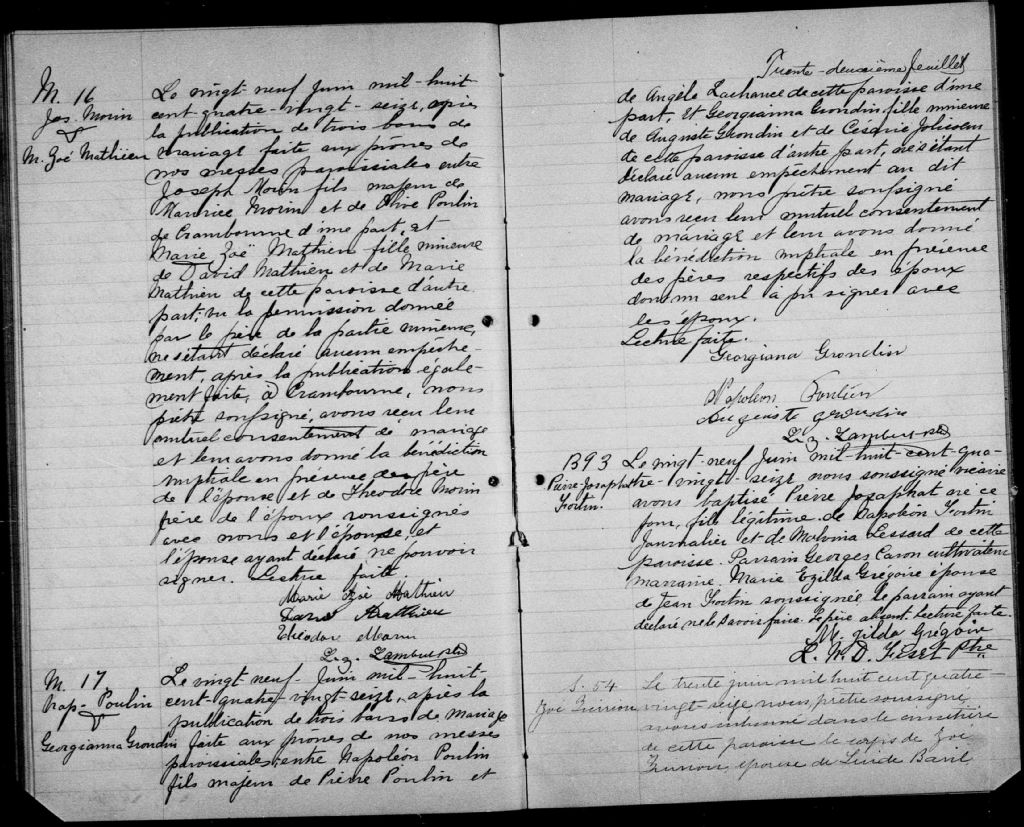 M. 16
Jos. Morin
&
M. Zoé Mathieu
Le vingt-neuf Juin mil-huit
cent-quatre-vingt-seize, après
la publication de trois bans de
mariage faite aux prônes de
nos messes paroissiales entre
Joseph Morin fils majeur de
Maurice Morin et de Olive Poulin
de Crambourne d'une part, et
Marie Zoë Mathieu fille mineure
de David Mathieu et de Marie
Mathieu de cette paroisse d'autre
part; vu la permission donnée
par le père de la partie mineure,
ne s'étant déclaré aucun empêche-
ment, après la publication égale-
ment faite, à Crambourne, nous
prêtre soussigné, avons reçu leur
mutuel consentement de mariage
et leur avons donné la bénédiction
nuptiale en présence des père
de l'épouse et de Théodore Morin
père de l'époux soussignés
avec nous et l'épouse, et
l'épouse ayant déclaré ne pouvoir
signer. Lecture faite.
Marie Zoé Mathieu
David Mathieu
Théodore Morin
M. 17
Nap- Poulin
&
Georgianna Grondin
Le vingt-neuf Juin mil-huit
cent-quatre-vingt-seize, après la
publication de trois bans de Mariage
faite aux prônes de nos messes
paroissiales, entre Napoléon Poulin
fils majeur de Pierre Poulin et
Trente-deuxième feuillet
de Angèle Lachance de cette paroisse d'une
part, et Georgianna Grondin fille mineure
de Auguste Grondin et de Césarie Jolicoeur
de cette paroisse d'autre part, ne s'étant
déclaré aucun empêchement au dit
mariage, nous prêtre soussigné
avons reçu leur mutuel consentement
de mariage et leur avons donné
la bénédiction nuptiale en présence
des pères respectifs des époux
dont un seul a pu signer avec
les époux.
Lecture faite.
Georgiana Grondin
Napoléon Poulin
Auguste Grondin
B93
Pierre Josaphat
Fortin.
Le vingt-neuf Juin mil-huit-cent-qua-
tre-vingt-seize nous soussigné vicaire
avons baptisé Pierre Josaphat né ce
jour, fils légitime de Napoléon Fortin
Journalier et de Malvina Lessard de cette
paroisse. Parrain Georges Caron cultivateur
marraine, Marie Ezilda Grégoire épouse
de Jean Fortin soussignée, le parrain ayant
déclaré ne le savoir faire. Le père absent. Lecture faite.
M. Zilda Grégoire
L. N. D. Fiset Ptre
S. 54
Zoé
Le trente juin mil huit cent quatre-
vingt-seize nous, prêtre soussigné,
avons inhumé dans le cimetière
de cette paroisse le corps de Zoé
épouse de Baril